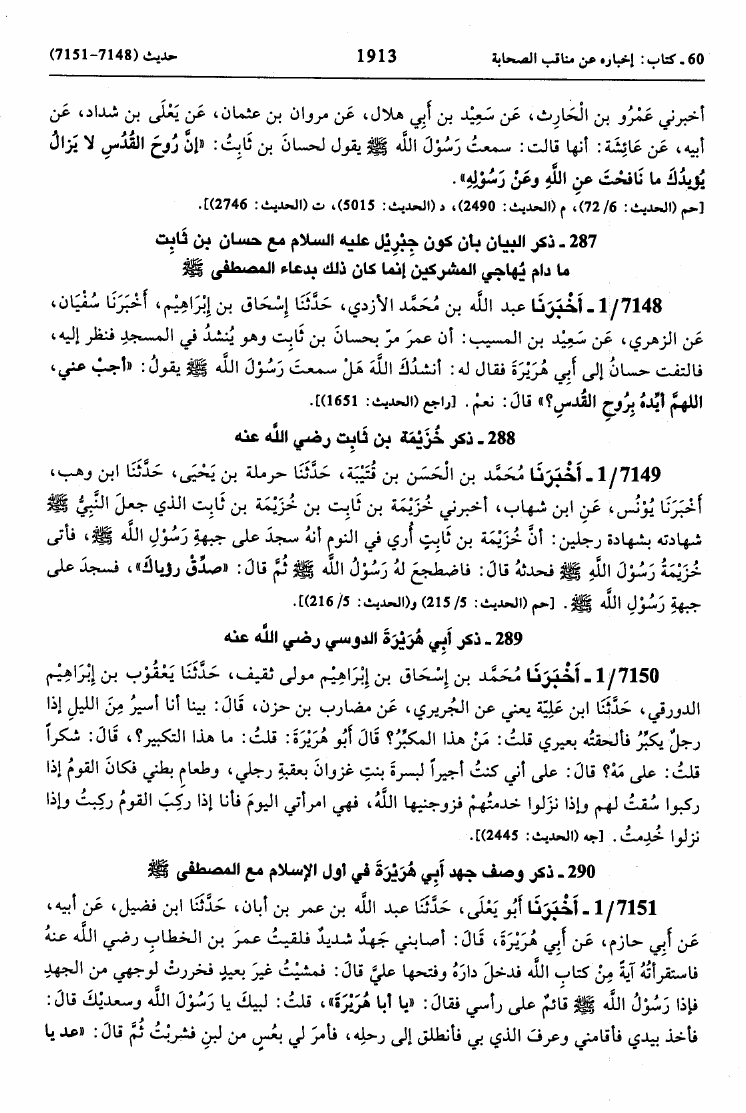 60 ـ كتاب: إخباره عن مناقب الصحابة 1913 حديث (7148-7151)
أخبرني عَمْرُو بن الْحَارِث، عَن سَعِيْد بن أَبِي هلال، عَن مروان بن عثمان، عَن يَعْلَى بن شداد، عَن
أبيه، عَن عَائِشَة: أنها قالت: سمعتُ رَسُوْلَ اللَّه ﷺ يقول لحسانَ بن ثَابِتُ: «إنَّ رُوحَ القُدُسِ لا يَزالُ
يُؤيدُكَ ما نَافَحْتَ عنِ اللَّهِ وعَنْ رَسُولِهِ».
[حم (الحديث: 6/ 72)، م (الحديث: 2490)، د (الحديث: 5015)، ت (الحديث: 2746)].
287 ـ ذكر البيان بان كون جِبْرِيْل عليه السلام مع حسان بن ثَابِت
ما دام يُهاجي المشركين إنما كان ذلك بدعاء المصطفى ﷺ
1/7148 ـ أَخْبَرَنَا عبد اللَّه بن مُحَمَّد الأزدي، حَدَّثَنَا إِسْحَاق بن إِبْرَاهِيم، أَخْبَرَنَا سُفْيَان،
عَن الزهري، عَن سَعِيْد بن المسيب: أن عمرَ مرّ بحسانَ بن ثَابِت وهو يُنشدُ في المسجدِ فنظر إليه،
فالتفت حسانُ إلى أَبِي هُرَيْرَةَ فقال له: أنشدُكَ اللَّهَ هَلْ سمعتَ رَسُوْلَ اللَّه ﷺ يقولُ: «أجبْ عني،
اللهمَّ أيّدهُ بِرُوحِ القُدسِ؟» قالَ: نعمْ. [راجع (الحديث: 1651)].
288 ـ ذكر خُزَيْمَة بن ثَابِت رضي اللَّه عنه
1/7149 ـ أَخْبَرَنَا مُحَمَّد بن الْحَسَن بن قُتَيْبَة، حَدَّثَنَا حرملة بن يَحْيَى، حَدَّثَنَا ابن وهب،
أَخْبَرَنَا يُوْنُس، عَنِ ابن شهاب، أخبرني خُزَيْمَة بن ثَابِت بن خُزَيْمَة بن ثَابِت الذي جعلَ النَّبِيُّ ﷺ
شهادته بشهادة رجلين: أنَّ خُزَيْمَة بن ثَابِتٍ أُري في النوم أنهُ سجدَ على جبهةِ رَسُوْلِ اللَّه ﷺ، فأتى
خُزَيْمَةُ رَسُوْلَ اللَّهِ ﷺ فحدثهُ قالَ: فاضطجعَ لهُ رَسُوْلُ اللَّه ﷺ ثُمَّ قالَ: «صدِّقْ رؤياكَ»، فسجدَ على
جبهةِ رَسُوْلِ اللَّه ﷺ. [حم (الحديث: 5/ 215) و(الحديث: 5/ 216)].
289 ـ ذكر أَبِي هُرَيْرَةَ الدوسي رضي اللَّه عنه
1/7150 ـ أَخْبَرَنَا مُحَمَّد بن إِسْحَاق بن إِبْرَاهِيْم مولى ثقيف، حَدَّثَنَا يَعْقُوْب بن إِبْرَاهِيْم
الدورقي، حَدَّثَنَا ابن عَلِيّة يعني عن الجُريري، عَن مضارب بن حزن، قَالَ: بينا أنا أسيرُ مِنَ الليلِ إذا
رجلٌ يكبِّرُ فألحقتُه بعيري قلتُ: مَنْ هذا المكبِّرُ؟ قَالَ أَبُو هُرَيْرَةَ: قلتُ: ما هذا التكبير؟، قَالَ: شكراً
قلتُ: على مَهْ؟ قالَ: على أني كنتُ أجيراً لبسرةَ بنتِ غزوانَ بعقبةِ رجلي، وطعامِ بطني فكانَ القومُ إذا
ركبوا سُقتُ لهم وإذا نزَلوا خدمتُهمْ فزوجنيها اللَّهُ، فهي امرأتي اليومَ فأنا إذا ركِبَ القومُ ركِبتُ وإذا
نزلوا خُدِمتُ. [جه (الحديث: 2445)].
290 ـ ذكر وصف جهد أَبِي هُرَيْرَةَ في أول الإسلام مع المصطفى ﷺ
1/7151 ـ أَخْبَرَنَا أَبُو يَعْلَى، حَدَّثَنَا عبد اللَّه بن عمر بن أبان، حَدَّثَنَا ابن فضيل، عَن أبيه،
عَن أَبِي حازم، عَن أَبِي هُرَيْرَةَ، قَالَ: أصابني جَهدٌ شديدٌ فلقيتُ عمرَ بن الخطابِ رضي اللَّه عنهُ
فاستقرأتُهُ آيةً مِنْ كتابِ اللَّه فدخلَ دارَهُ وفتحها عليَّ قالَ: فمشيْتُ غيرَ بعيدٍ فخررتُ لوجهي من الجهدِ
فإذا رَسُوْلُ اللَّه ﷺ قائمٌ على رأسي فقالَ: «يا أبا هُرَيْرَةَ»، قلتُ: لبيكَ يا رَسُوْلَ اللَّه وسعديْكَ قالَ:
فأخذ بيدي فأقامني وعرفَ الذي بي فأنطلق إلى رحلِه، فأمرَ لي بعُسٍ من لبنٍ فشربْتُ ثُمَّ قالَ: «عد يا